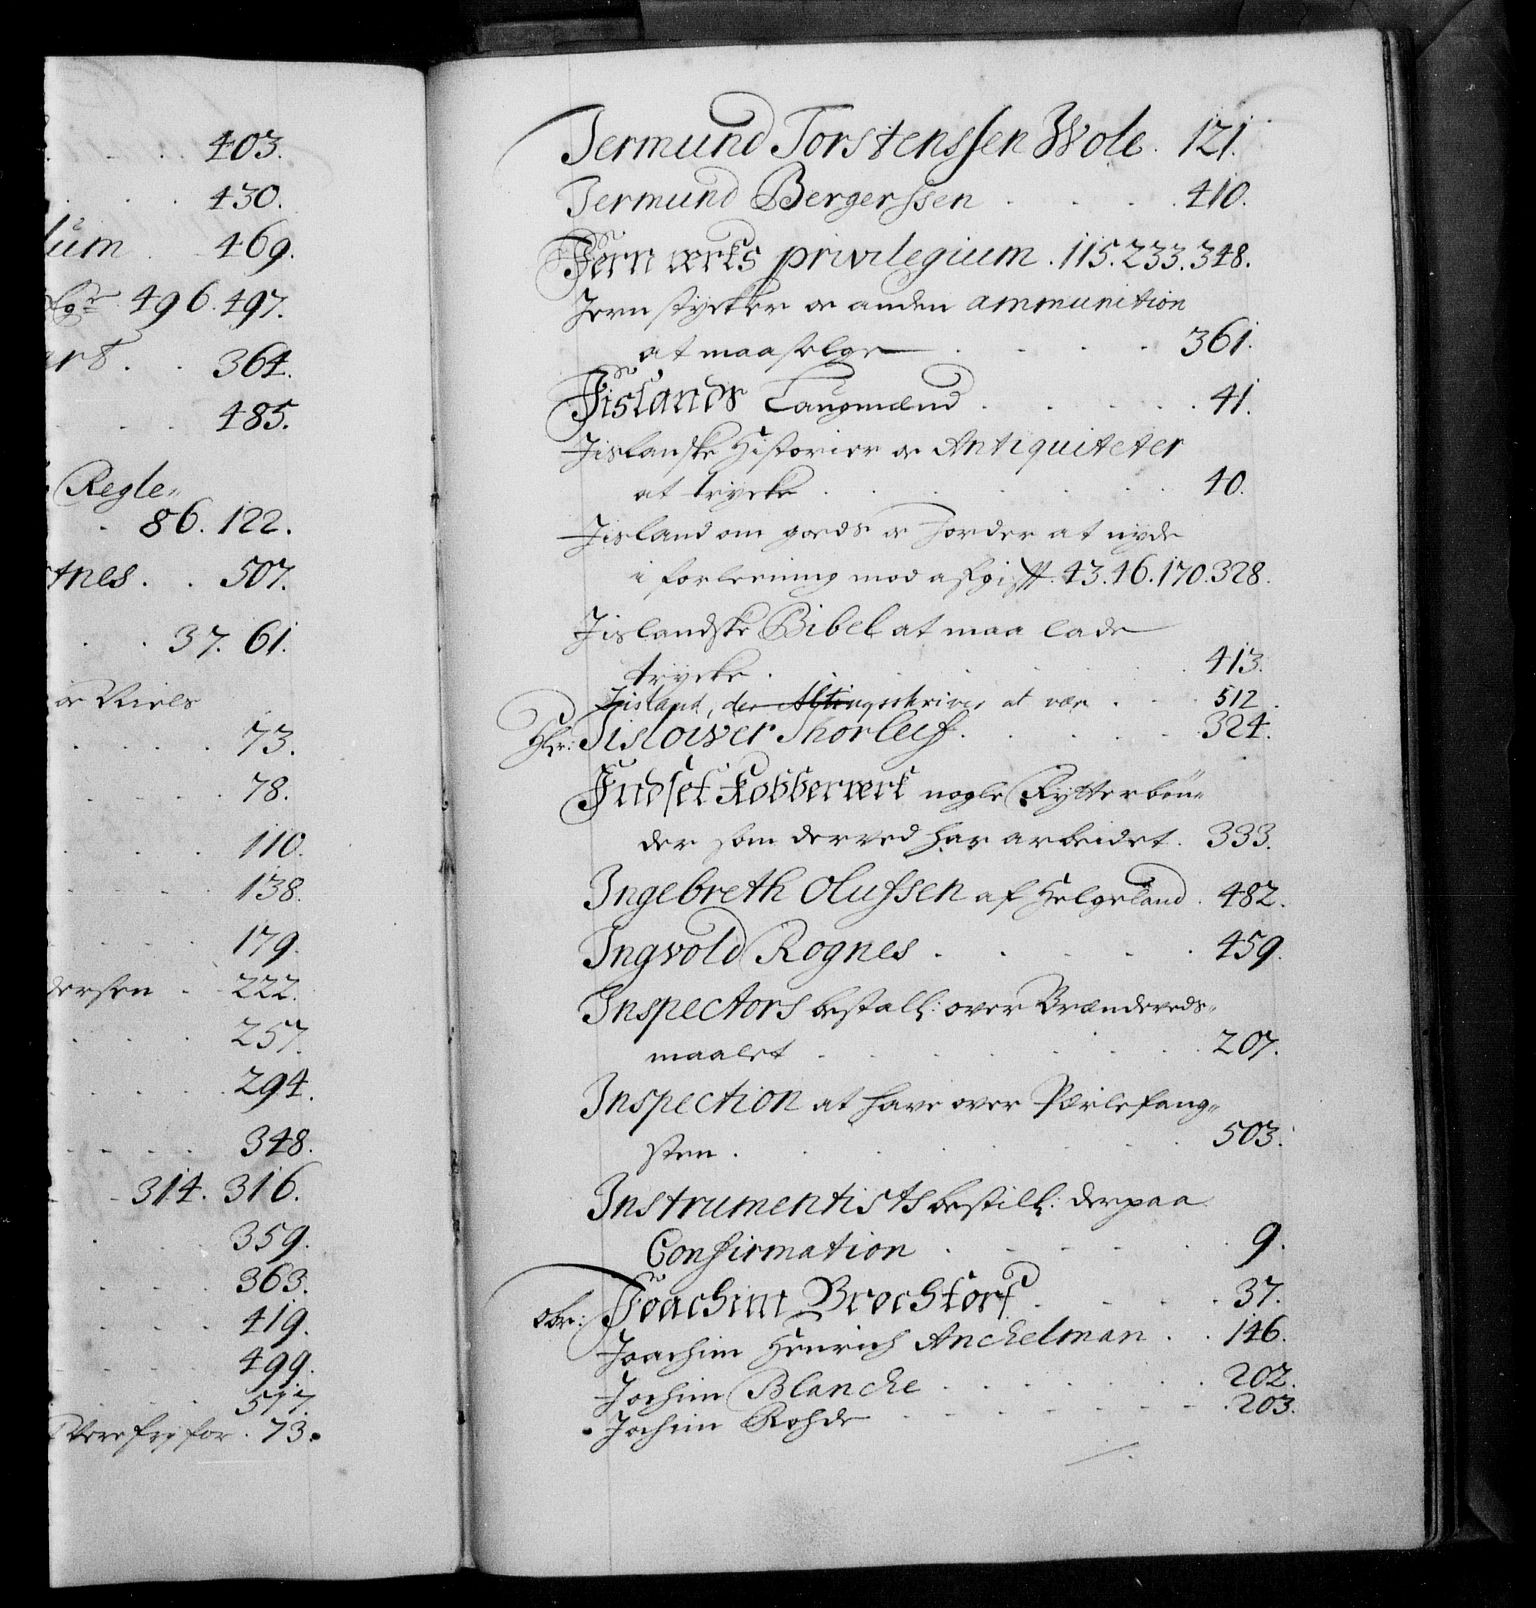 403.
430.
lŭm 469.
496. 497.
364.
485.
Regle⸗
86. 122.
tnes. 507.
37. 61.
Niels
73.
78.
110.
138.
179.
dersen 222.
257.
294.
348.
314. 316.
359.
363.
419.
499.
517.
frj for 73.
Jermund Torstenssen Wole. 121.
Jermund Bergerssen 410.
Jernværks privilegium. 115. 233. 348.
Jern stycker oc anden ammunition
at maa selge 361.
Jislands Laugmænd 41.
Jislanske Historier oc Antiquiteter
at trycke 40.
Jisland om gods oc Jorder at nyde
i forlening mod afgifft. 43. 46. 170. 328.
Jislandske Bibel at maa lade
trycke 413.
Jisland, der Altingsskriver at være 512.
Hr: Jisloiver Thorleif. 324.
Indset Kobberverk nogle Rytterbøn⸗
der som derved har arbeidet. 333.
Ingebreth Olufssen af Helgeland. 482.
Ingvold Rognes 459.
Inspectors bestall: over Brændeveds⸗
maalet 207.
Inspection at have over Perlefang⸗
sten 503.
Instrumentists bestill: derpaa
Confirmation 9.
Joachim Brochtorf 37.
Joachim Henrich Anckelman 146.
Jochim Blancke 202.
Jochim Rohde 203.